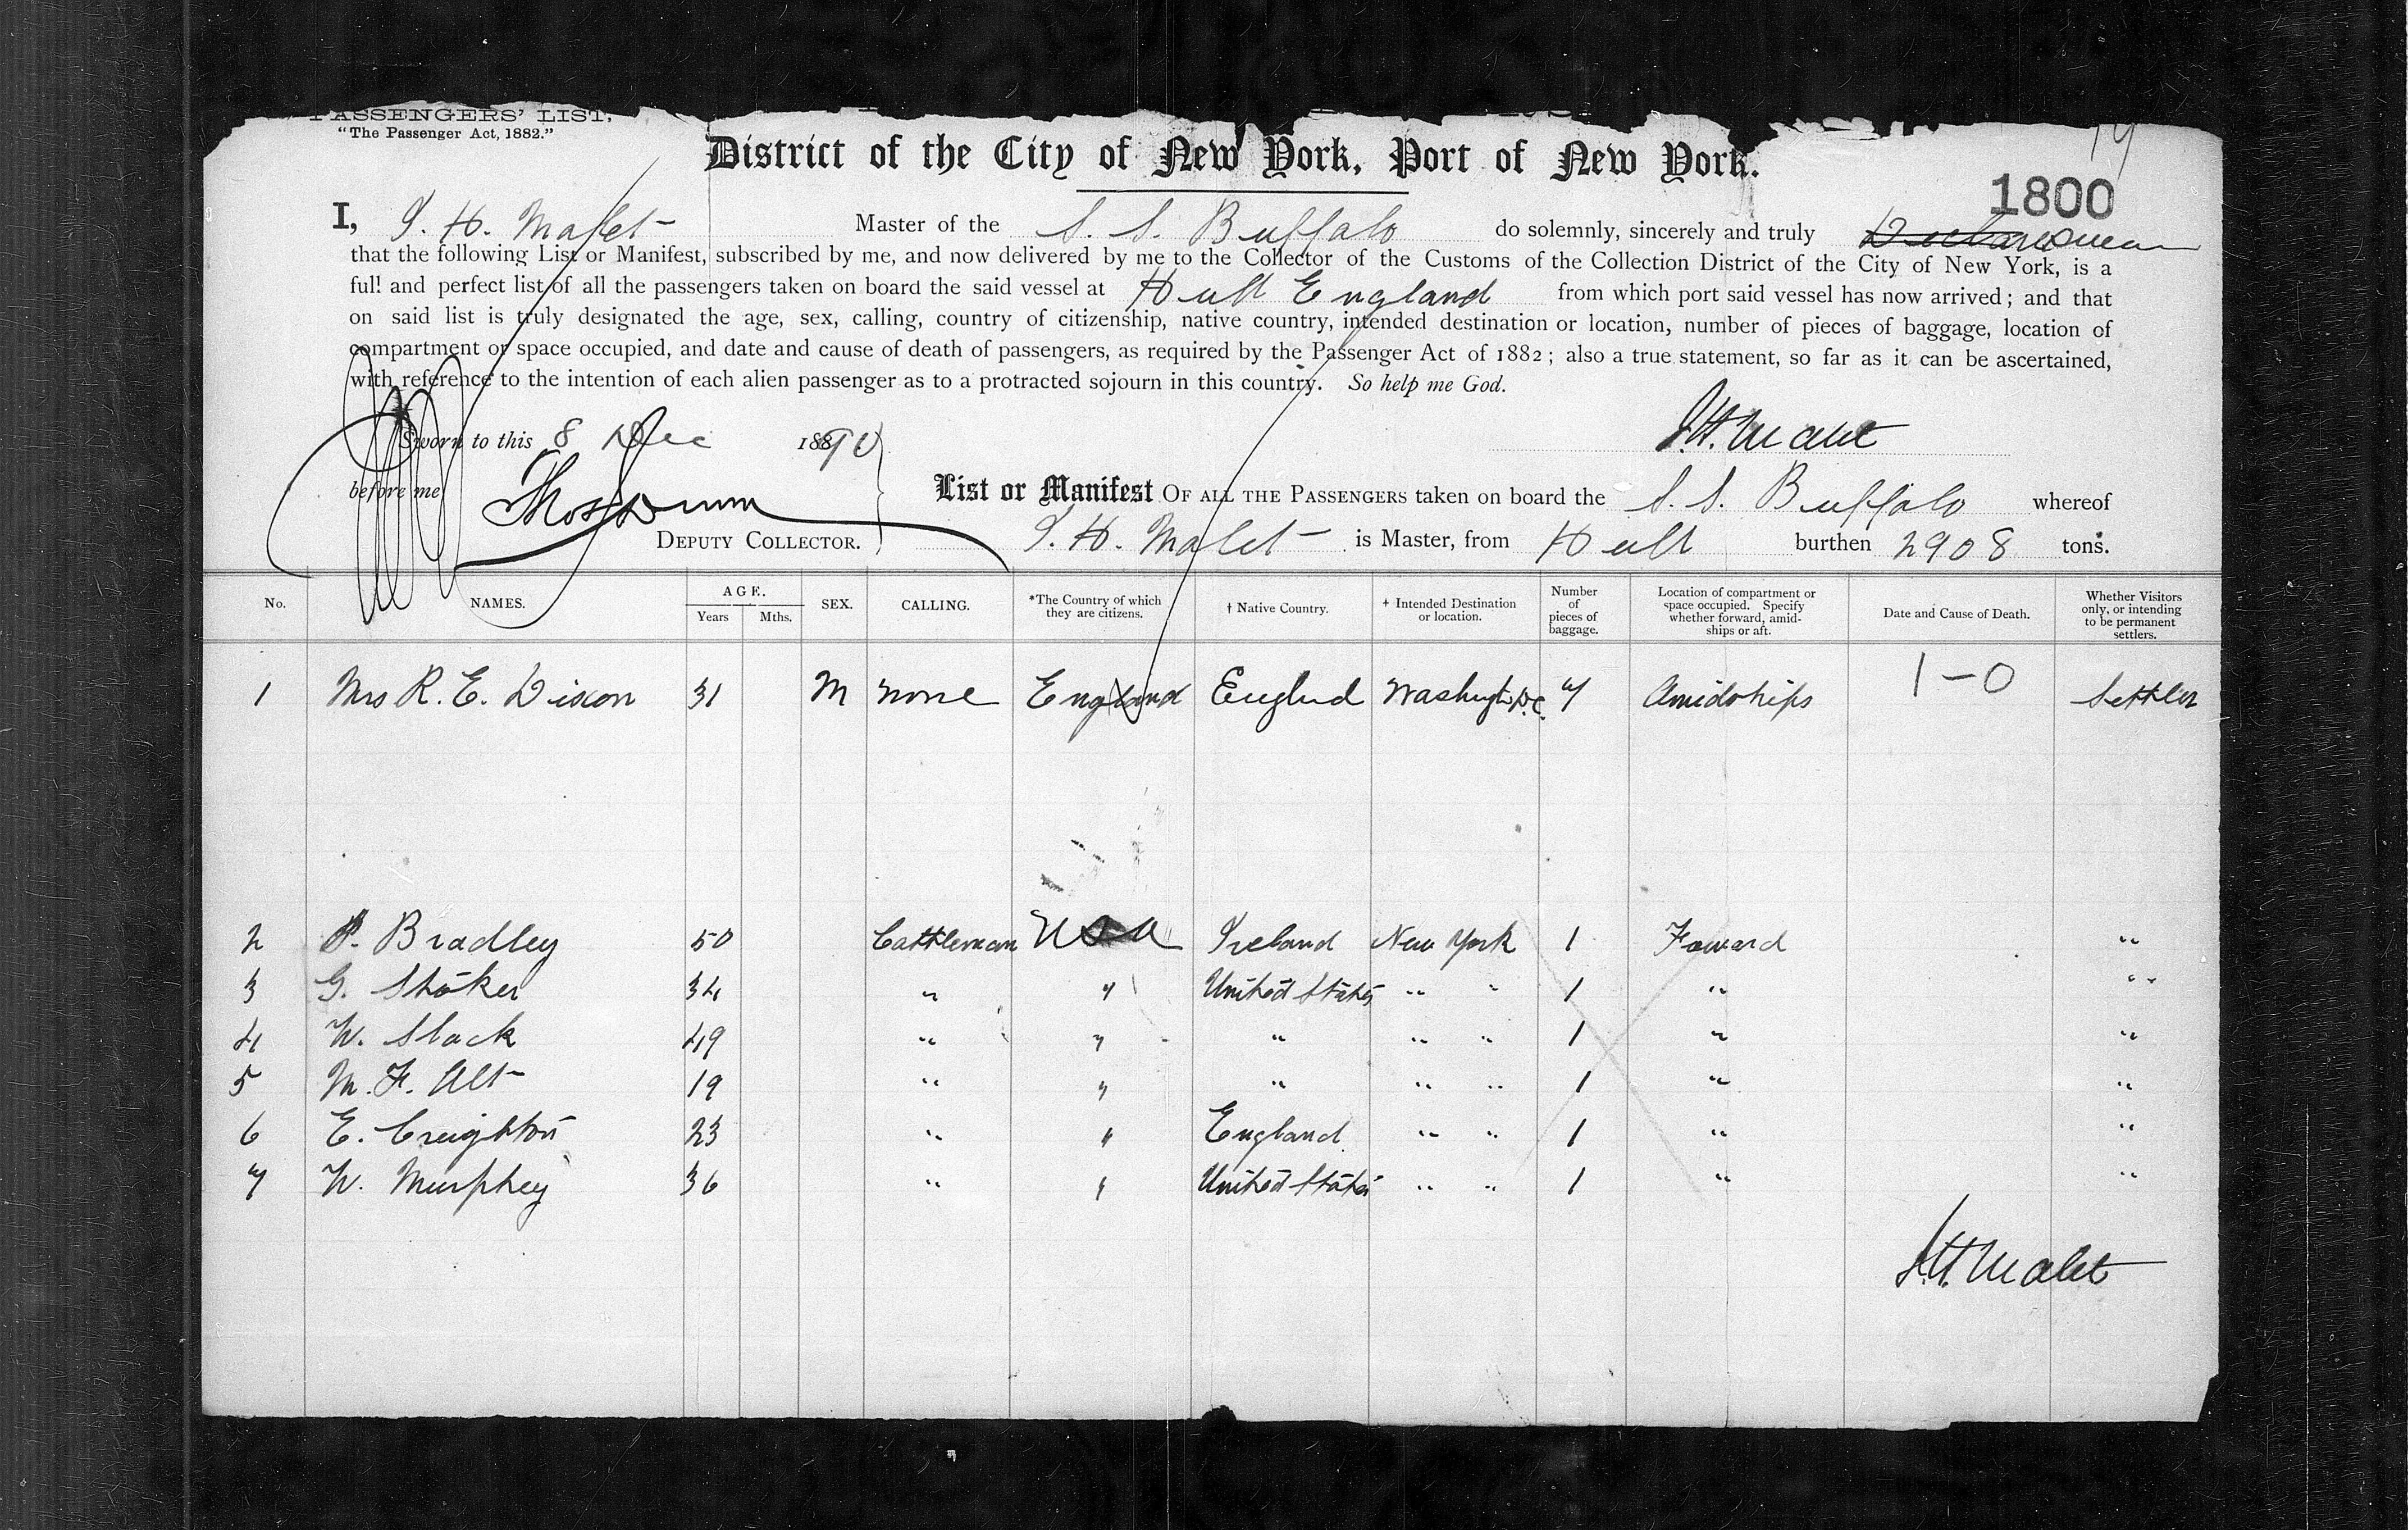 PASSENGERS' LIST.
"The Passenger Act, 1882."
District of the City of New York, Port of New York.
1800
I, J. H. Malet Master of the S. S. Buffalo do solemnly, sincerely and truly swear
that the following List or Manifest, subscribed by me, and now delivered by me to the Collector of the Customs of the Collection District of the City of New York, is a
full and perfect list of all the passengers taken on board the said vessel at Hull England from which port said vessel has now arrived; and that
on said list is truly designated the age, sex, calling, country of citizenship, native country, intended destination or location, number of pieces of baggage, location of
compartment or space occupied, and date and cause of death of passengers, as required by the Passenger Act of 1882; also a true statement, so far as it can be ascertained,
with reference to the intention of each alien passenger as to a protracted sojourn in this country. So help me God.
Sworn to this 8 Dec 1890 J. H. Malet
before me
DEPUTY COLLECTOR.
List or Manifest OF ALL THE PASSENGERS taken on board the S. S. Buffalo whereof
J. H. Malet is Master, from Hull burthen 2908 tons.
No. NAMES. AGE. Years Mths. SEX. CALLING. *The Country of which they are citizens. † Native Country. ‡ Intended Destination or location. Number of pieces of baggage. Location of compartment or space occupied. Specify whether forward, amidships or aft. Date and Cause of Death. Whether Visitors only, or intending to be permanent settlers.
1 Mrs R. E. Dixon 31 M none England England Washington D.C. 7 Amidships 1-0 Settler
2 P. Bradley 50 Cattleman USA Ireland New York 1 Foward "
3 G. Stoker 34 " " United States " " 1 " "
4 W. Slack 49 " " " " " 1 " "
5 M. F. Alt 19 " " " " " 1 " "
6 E. Creighton 23 " " England " " 1 " "
7 W. Murphey 36 " " United States " " 1 " "
J. H. Malet